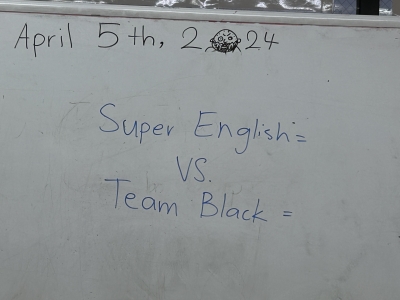 April 5th, 2024
Super English =
VS.
Team Black =